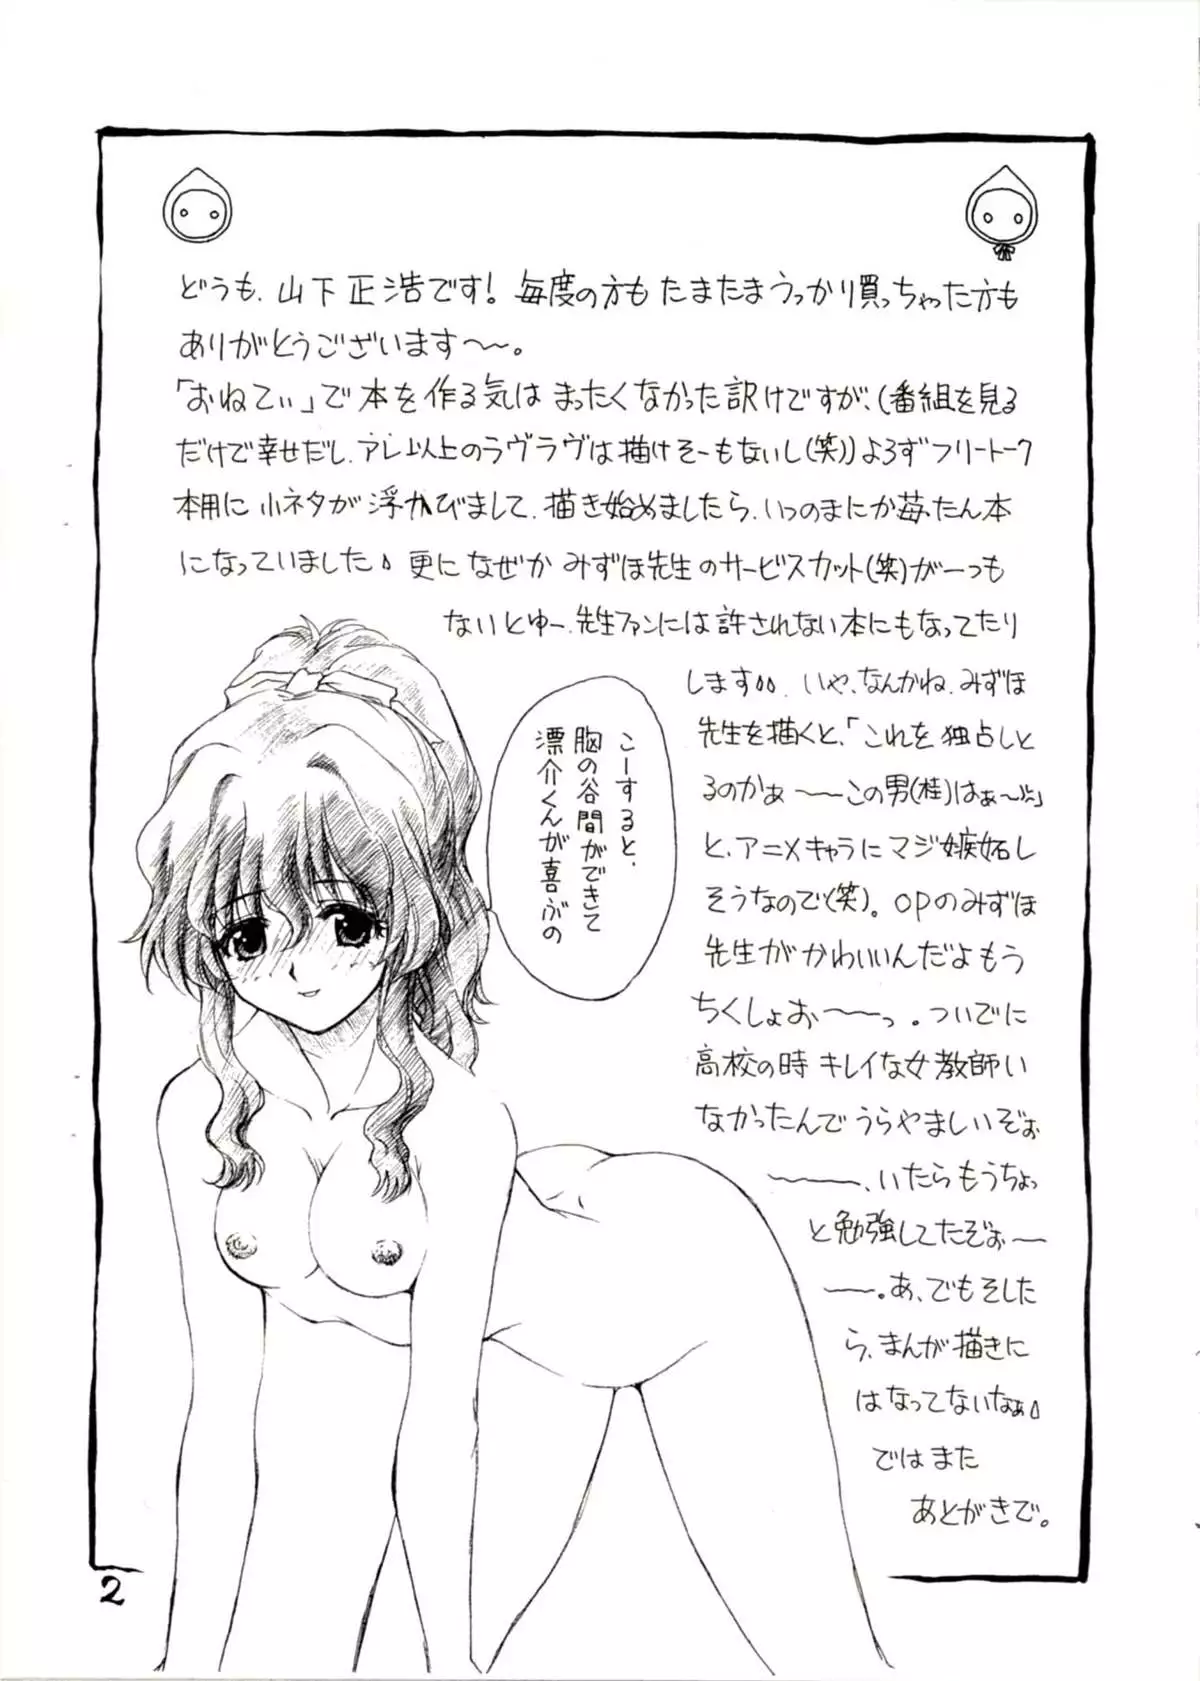 どうも、山下正浩です! 毎度の方も たまたまうっかり買っちゃった方も
ありがとうございます～～。
「おねてぃ」で本を作る気は まったくなかった訳けですが、(番組を見る
だけで幸せだし、アレ以上のラヴラヴは描けそーもないし(笑))よろずフリートーク
本用に 小ネタが浮かびまして、描き始めましたら、いつのまにか苺たん本
になっていました 更になぜか みずほ先生のサービスカット(笑)が一つも
ないとゆー、先生ファンには許されない本にもなってたり
します 、いや、なんかね、みずほ
先生を描くと、「これを独占しと
るのかぁ～～この男(桂)はぁ～」
と、アニメキャラにマジ嫉妬し
そうなので(笑)。OPのみずほ
先生がかわいいんだよもう
ちくしょお～～っ。ついでに
高校の時 キレイな女教師い
なかったんでうらやましいぞぉ
～～、いたらもうちょっ
と勉強してたぞぉ～
～。あ、でもそした
ら、まんが描きに
はなってないなぁ
ではまた
あとがきで。
こーすると、
胸の谷間ができて
漂介くんが喜ぶの
2